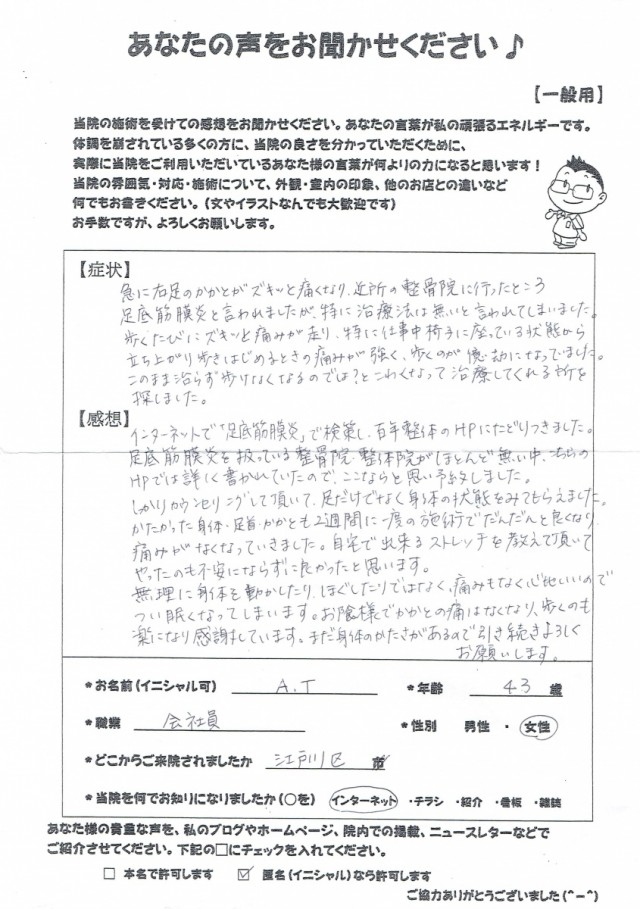 あなたの声をお聞かせください♪
【一般用】
当院の施術を受けての感想をお聞かせください。あなたの言葉が私の頑張るエネルギーです。
体調を崩されている多くの方に、当院の良さを分かっていただくために、
実際に当院をご利用いただいているあなた様の言葉が何よりの力になると思います！
当院の雰囲気・対応・施術について、外観・室内の印象、他のお店との違いなど
何でもお書きください。（文やイラストなんでも大歓迎です）
お手数ですが、よろしくお願いします。
【症状】
急に右足のかかとがズキッと痛くなり、近所の整骨院に行ったところ
足底筋膜炎と言われましたが、特に治療法は無いと言われてしまいました。
歩くたびにズキッと痛みが走り、特に仕事中椅子に座っている状態から
立ち上がり歩きはじめるときの痛みが強く、歩くのが億劫になっていました。
このまま治らず歩けなくなるのでは？とこわくなって治療してくれる所を
探しました。
【感想】
インターネットで「足底筋膜炎」で検索し、百年整体のHPにたどりつきました。
足底筋膜炎を扱っている整骨院・整体院がほとんど無い中、こちらの
HPでは詳しく書かれていたので、ここならと思い予約しました。
しっかりカウンセリングして頂いて、足だけでなく身体の状態をみてもらえました。
かたかった身体・足首・かかとも2週間に一度の施術でだんだんと良くなり、
痛みがなくなっていきました。自宅で出来るストレッチを教えて頂いて
やったのも不安にならずに良かったと思います。
無理に身体を動かしたり、ほぐしたりではなく、痛みもなく心地いいので
つい眠くなってしまいます。お陰様でかかとの痛はなくなり、歩くのも
楽になり感謝しています。まだ身体のかたさがあるので引き続きよろしく
お願いします。
＊お名前（イニシャル可） A.T ＊年齢 43 歳
＊職業 会社員 ＊性別 男性 ・ 女性
＊どこからご来院されましたか 江戸川区 市
＊当院を何でお知りになりましたか（○を） インターネット ・チラシ ・紹介 ・看板 ・雑誌
あなた様の貴重な声を、私のブログやホームページ、院内での掲載、ニュースレターなどで
ご紹介させてください。下記の□にチェックを入れてください。
□ 本名で許可します ☑ 匿名（イニシャル）なら許可します
ご協力ありがとうございました（＾－＾）